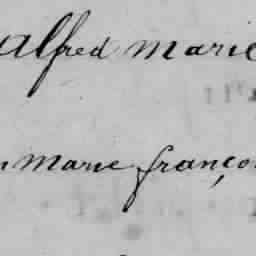 alfred marie
marie franço